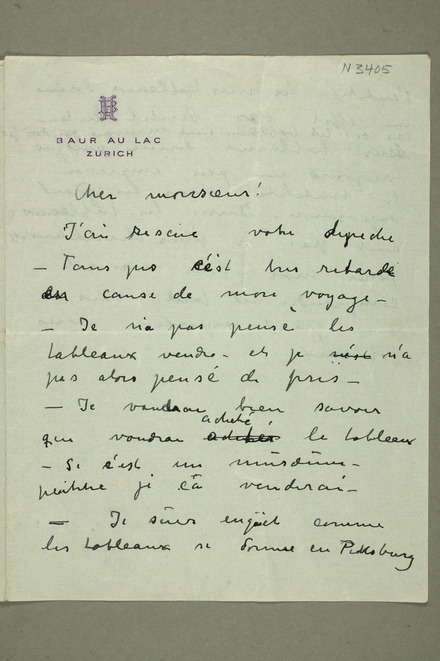 N 3405
BAUR AU LAC
ZURICH
Cher monsieur!
J'ai resciue votre depeche
– Tans pis c'est tres retardé
cause de mon voyage –
– Je n'a pas pensé les
tableaux vendre – et je n'a
pas alors pensé de pris –
– Je voudrau bien savoir
acheté
qui voudrau le tableaux
– Si c'est un musdum –
peithtre je ca venderai –
– Je suis enqiet comme
les tableaux se donne en Pittsburg